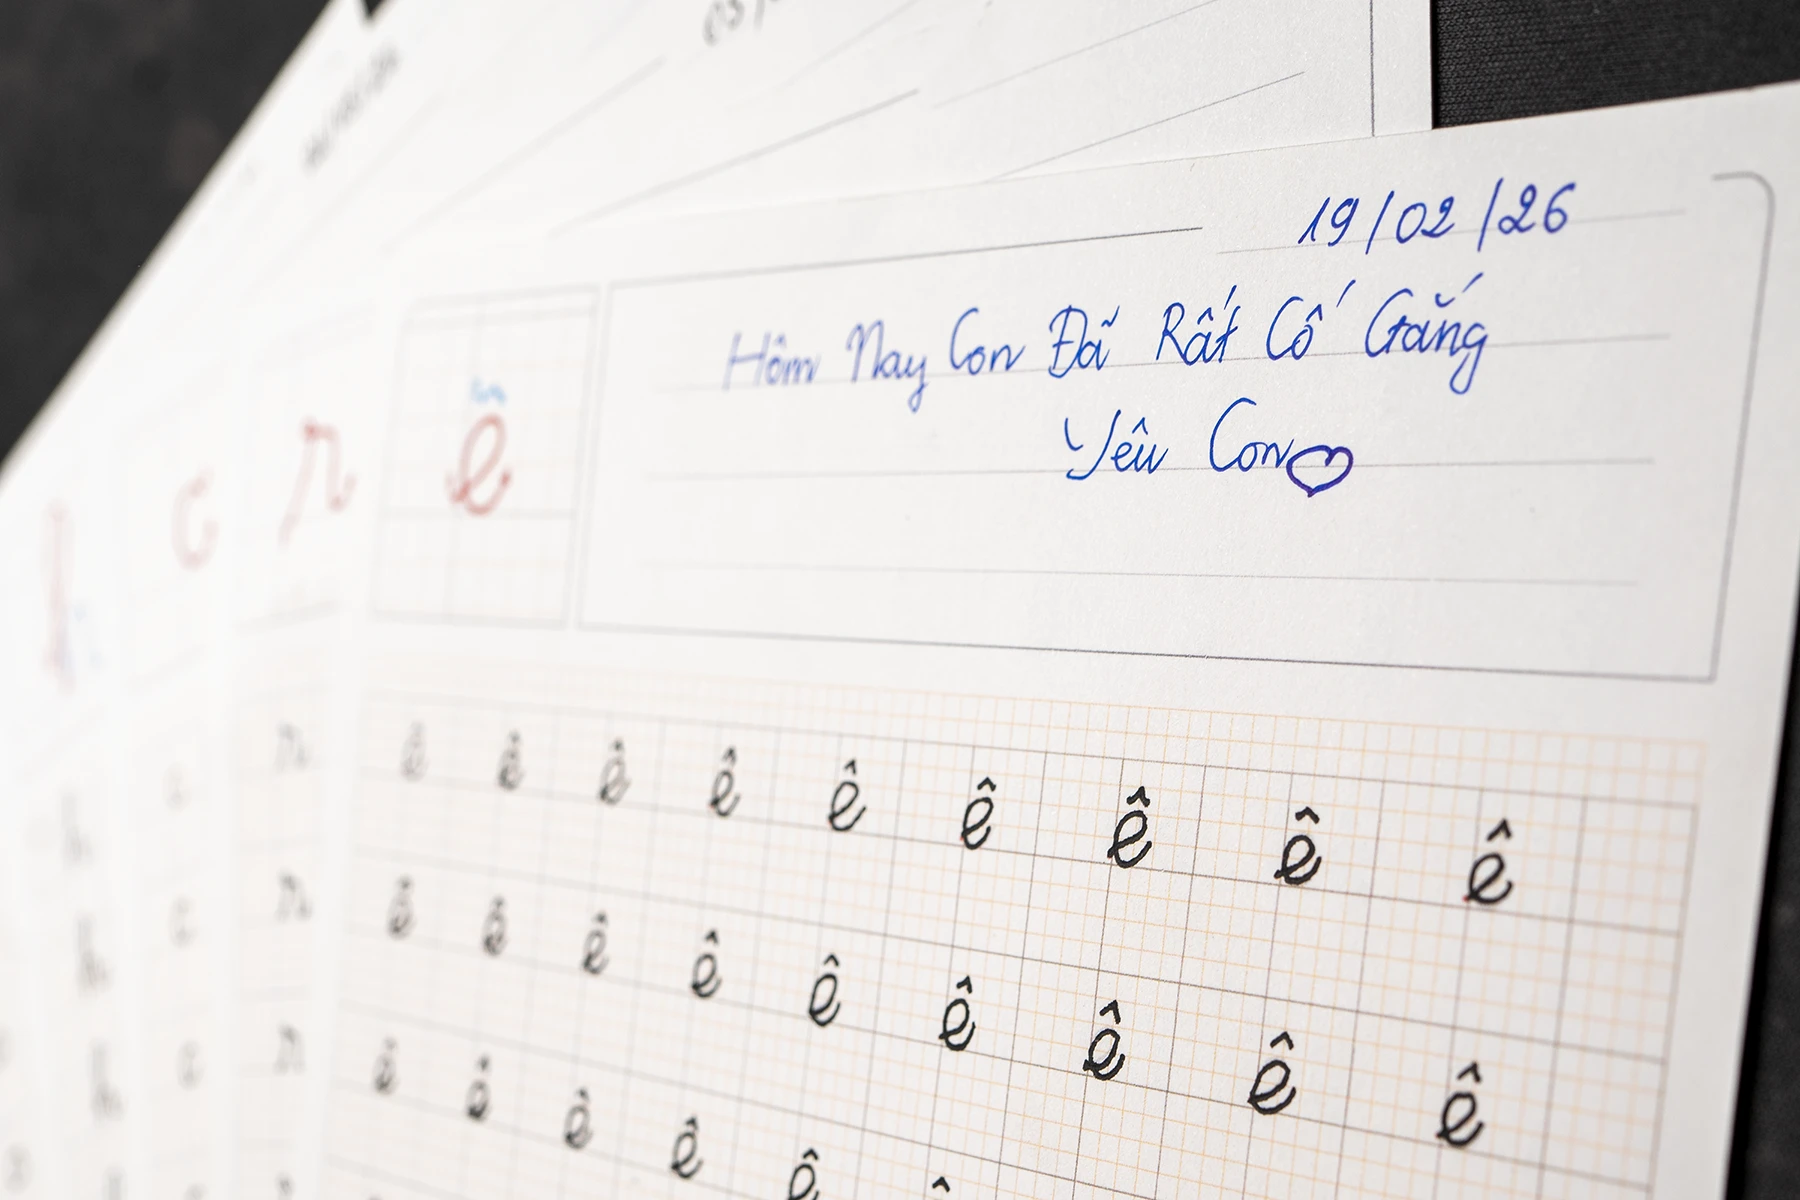 19/02/26
Hôm Nay Con Đã Rất Cố Gắng
Yêu Con
e
n
c
ê ê ê ê ê ê ê ê ê
ê ê ê ê ê ê ê ê ê
ê ê ê ê ê